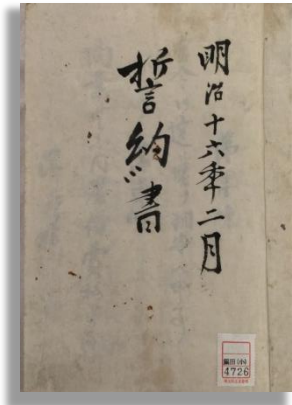 明治十六季二月
誓約書
4726